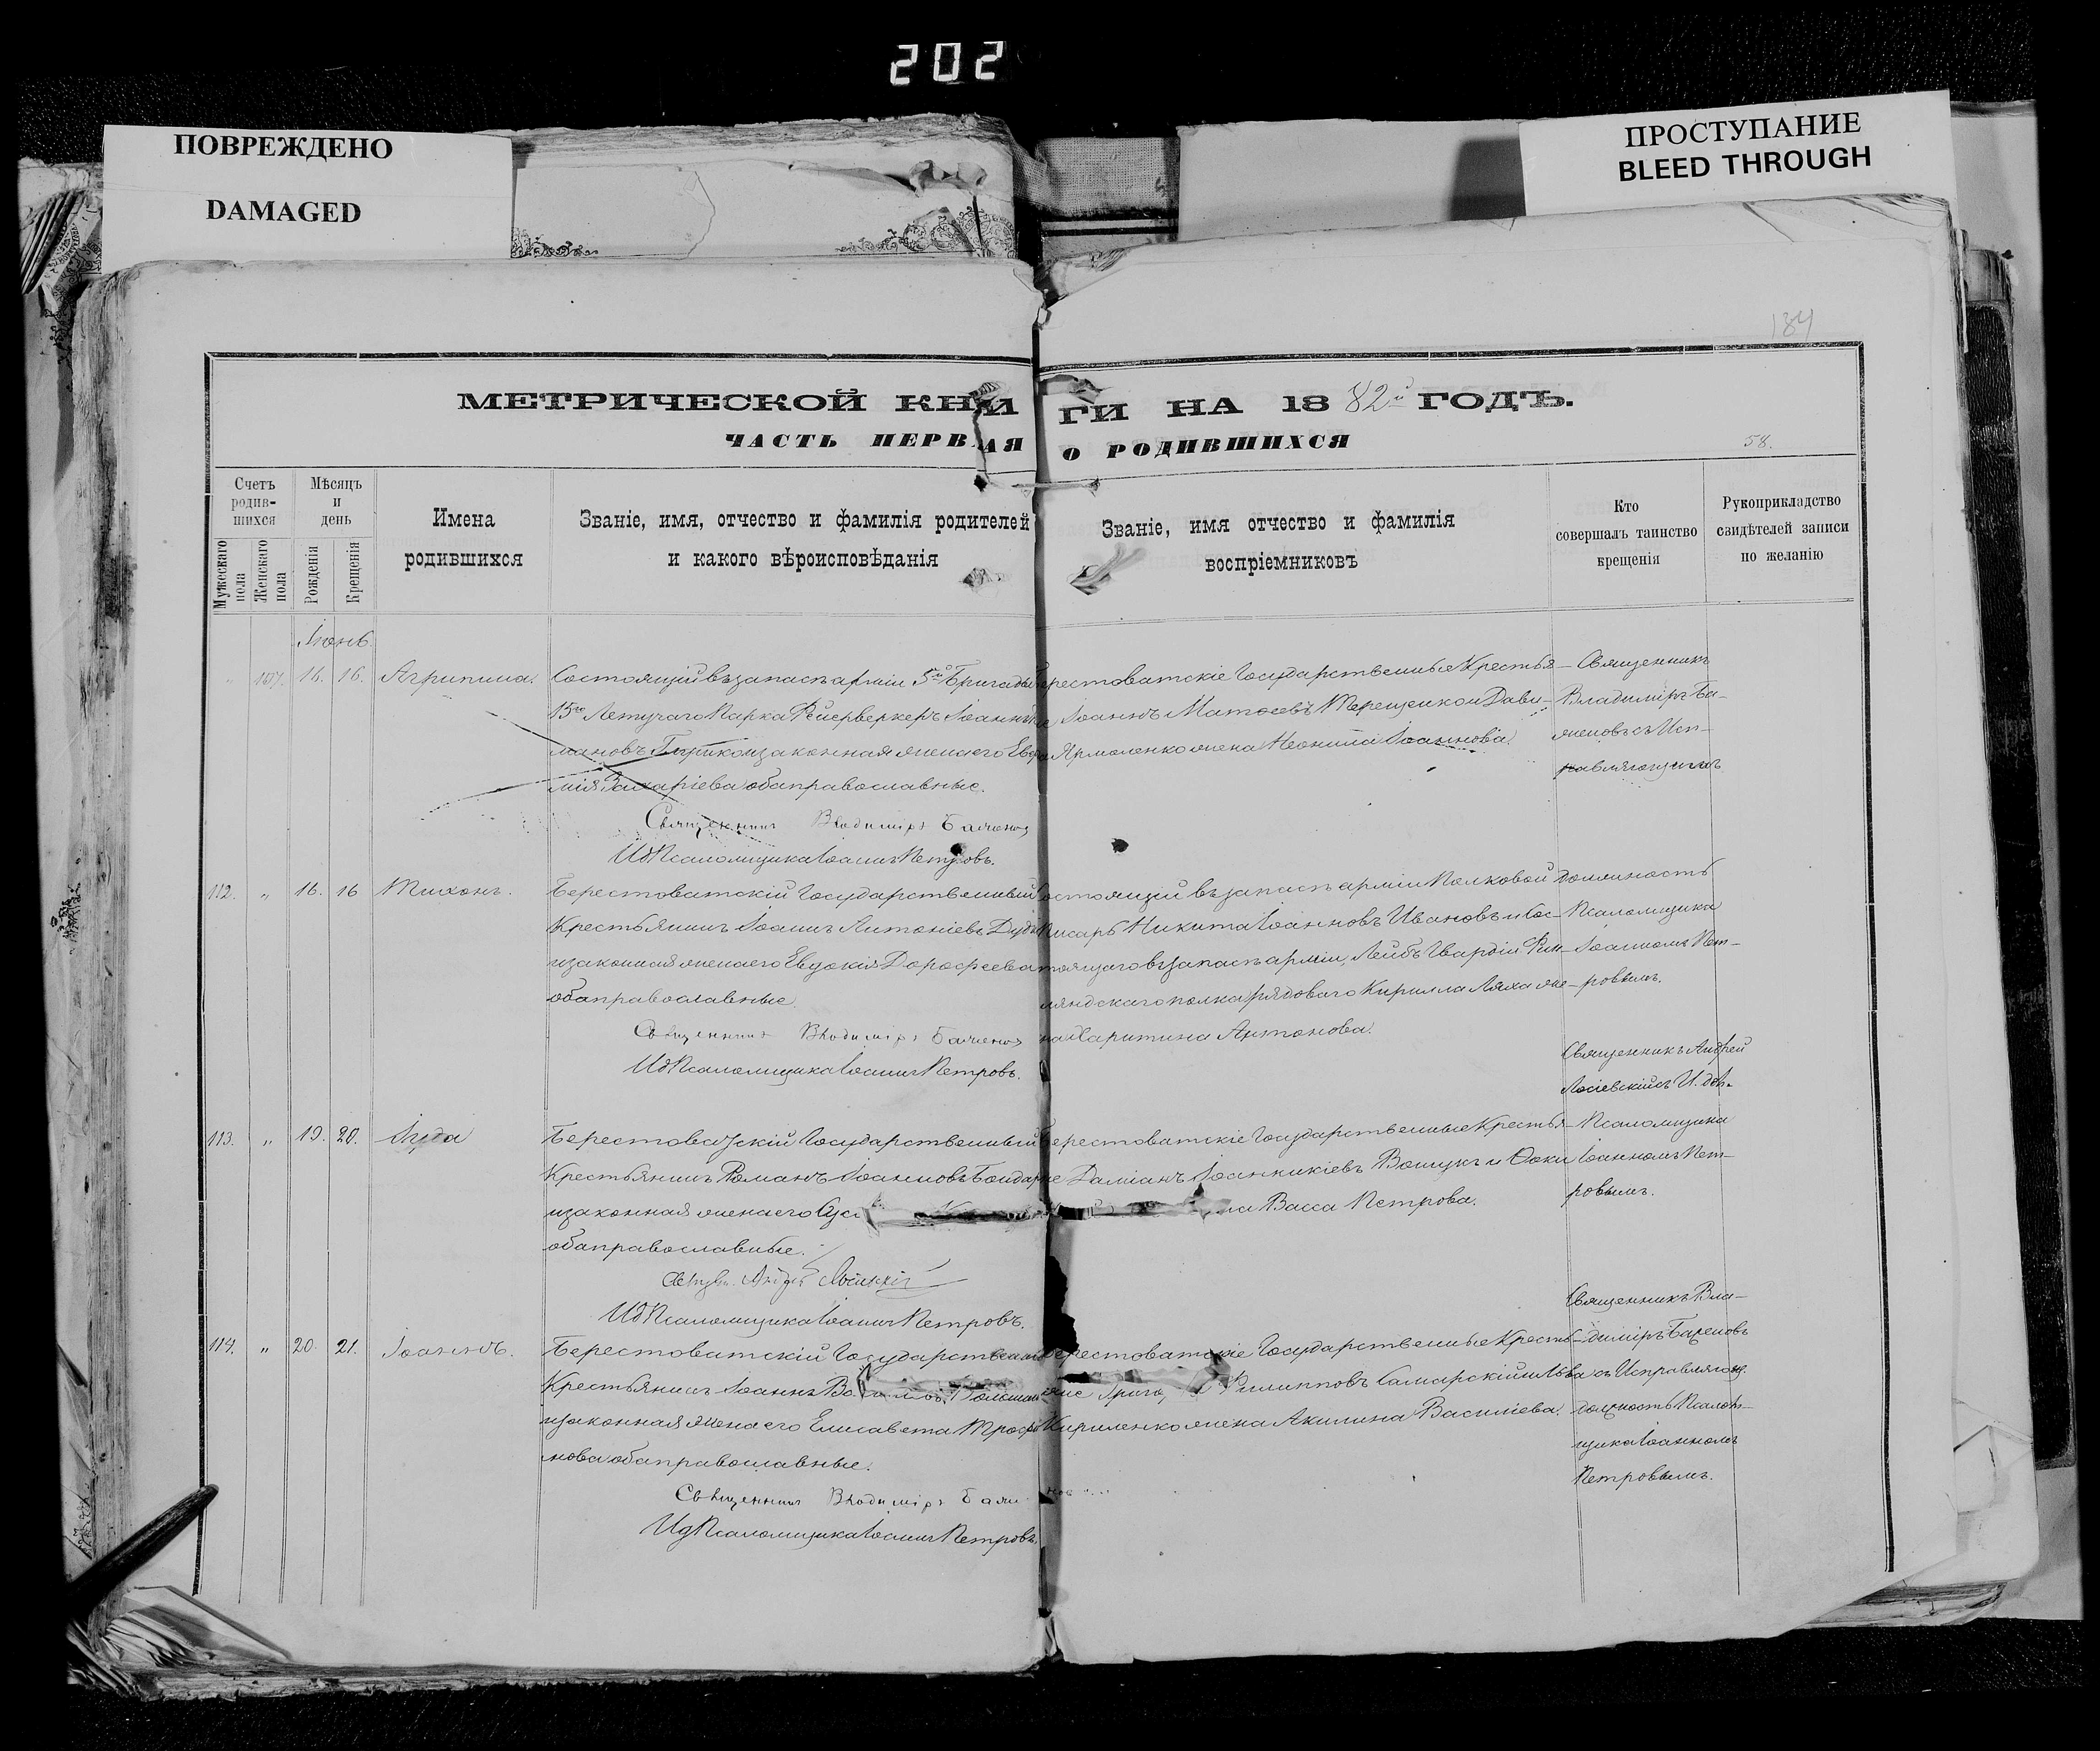 202
ПОВРЕЖДЕНО
DAMAGED
ПРОСТУПАНИЕ
BLEED THROUGH
184
МЕТРИЧЕСКОЙ КНИГИ НА 1882й ГОДЪ.
ЧАСТЬ ПЕРВАЯ О РОДИВШИХСЯ
58.
Счетъ родив-шихся
Мужескаго пола
Женскаго пола
Мѣсяцъ и день
Рожденія
Крещенія
Имена родившихся
Званіе, имя, отчество и фамилія родителей
и какого вѣроисповѣданія
Званіе, имя отчество и фамилія
воспріемниковъ
Кто
совершалъ таинство
крещенія
Рукоприкладство
свидѣтелей записи
по желанію
Іюнь
16. 16. Агрипина.
Состоящій въ запасѣ арміи 5й Бригады
15го Летучаго Парка Фейерверкеръ Іоаннъ
мановъ и законная жена его Евфи
мія Захаріева оба православные.
Священникъ Владиміръ Баженовъ
ИдПсаломщика Іоаннъ Петровъ.
Берестоватскіе Государственные Крестья-
не Іоаннъ Матѳеевъ Терещенко и Дави-
Ярмоленко жена Неонила Іоаннова.
Священникъ
Владиміръ Ба-
женовъ съ Исп-
равляющимъ
112. „ 16. 16 Тихонъ.
Берестоватскій Государственный
Крестьянинъ Іоаннъ Антоніевъ
и законная жена его Евдокія Дорофеева
оба православные.
Священникъ Владиміръ Баженовъ
ИдПсаломщика Іоаннъ Петровъ.
Состоящій въ запасѣ арміи Полковой
Писарь Никита Іоанновъ Ивановъ и Сос-
тоящаго въ запасѣ арміи, Лейбъ Гвардіи Фин-
ляндскаго полка рядоваго Кирилла Ляха же-
на Харитина Антонова.
должность
Псаломщика
Іоанномъ Пет-
ровымъ.
113. „ 19. 20. Іуда
Берестоватскій Государственный
Крестьянинъ Романъ Іоанновъ Бондар
и законная жена его
оба православные.
Священ. Андрей
ИдПсаломщика Іоаннъ Петровъ.
Берестоватскіе Государственные Крестья-
не Даміанъ Іоанникіевъ и Ѳоки
Васса Петрова.
Священникъ Андрей
съ И. дол.
Псаломщика
Іоанномъ Пет-
ровымъ.
114. „ 20. 21. Іоаннъ.
Берестоватскій Государственный
Крестьянинъ Іоаннъ
и законная жена его Елисавета Трофи
мова оба православные.
Священникъ Владиміръ Баженовъ
ИдПсаломщика Іоаннъ Петровъ.
Берестоватскіе Государственные Кресть-
яне Филипповъ Самарскій и Льва
Кириленко жена Акилина Василіева.
Священникъ Вла-
диміръ Баженовъ
съ Исправляющ.
должность Псалом-
щика Іоанномъ
Петровымъ.